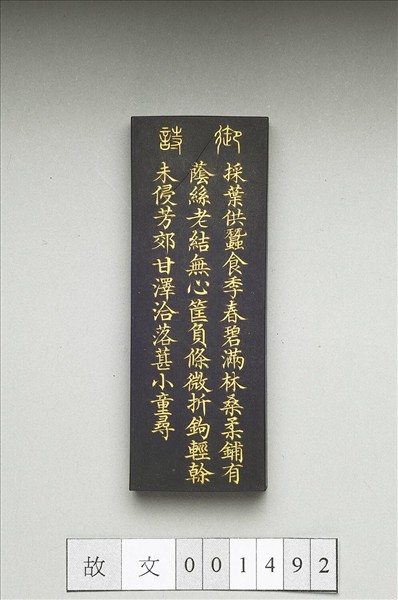 御詩
採葉供蠶食季春碧滿林桑柔鋪有
蔭絲老結無心筐負條微折鉤輕榦
未侵芳郊甘澤洽落葚小童尋
故文001492